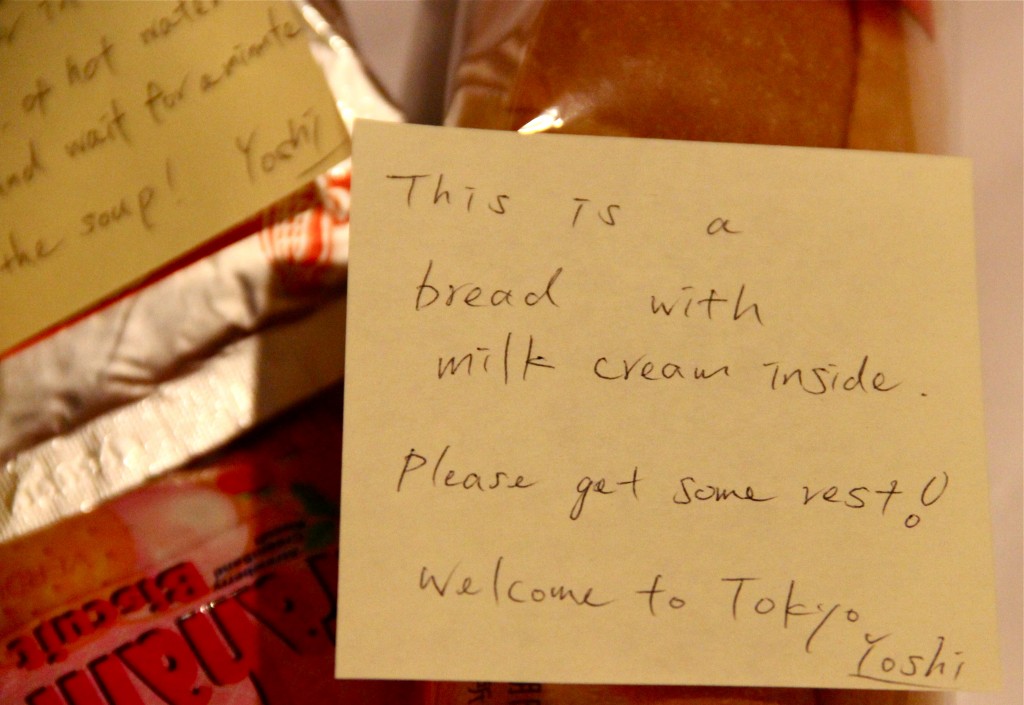 of hot water
and wait for a minute
the soup! Yoshi
This is a
bread with
milk cream inside.
Please get some rest!
Welcome to Tokyo
Yoshi
Biscuit